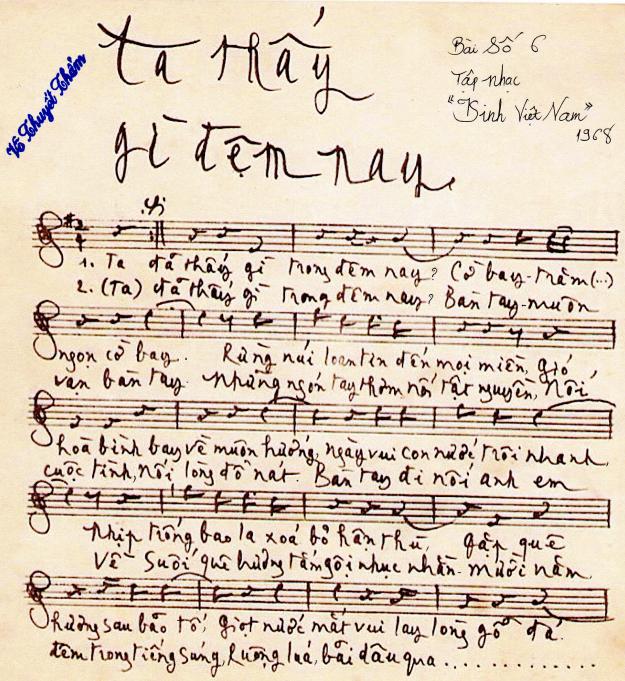 Ta thấy
gì đêm nay
Bài Số 6
Tập nhạc
"Kinh Việt Nam"
1968
Võ Thuyết Thảm
2
4
1. Ta đã thấy gì trong đêm nay? Cờ bay-trăm (..)
2. (Ta) đã thấy gì trong đêm nay? Bàn tay-muôn
ngọn cờ bay. Rừng núi loan tin đến mọi miền, gió
vạn bàn tay. Những ngón tay thơm nối tật nguyền, Nối
hoà bình bay về muôn hướng, ngày vui con nước trôi nhanh,
cuộc tình, nối lòng đổ nát. Bàn tay đi nối anh em
Nhịp trống bao la xoá bỏ hận thù, gặp quê
Về suối quê hương tắm gội nhục nhằn. mười năm,
hương sau bão tố, giọt nước mắt vui lay lòng gỗ đá.
đêm trong tiếng súng, Ruộng lúa, bãi dâu qua ............